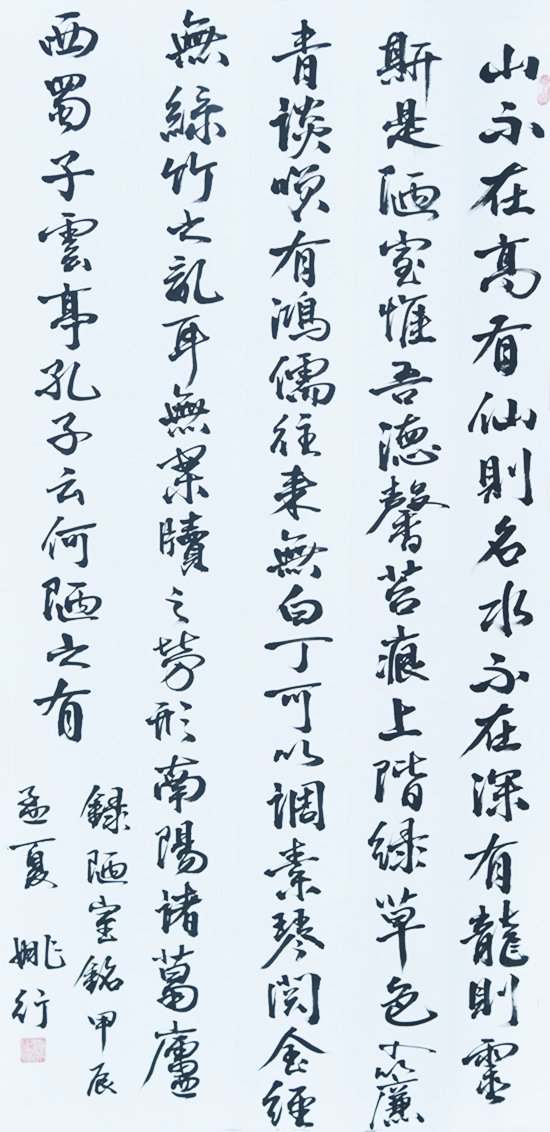 山不在高有仙則名水不在深有龍則靈
斯是陋室惟吾德馨苔痕上階綠草色入簾
青談笑有鴻儒往來無白丁可以調素琴閱金經
無絲竹之亂耳無案牘之勞形南陽諸葛廬
西蜀子雲亭孔子云何陋之有
錄陋室銘甲辰
孟夏 姚行